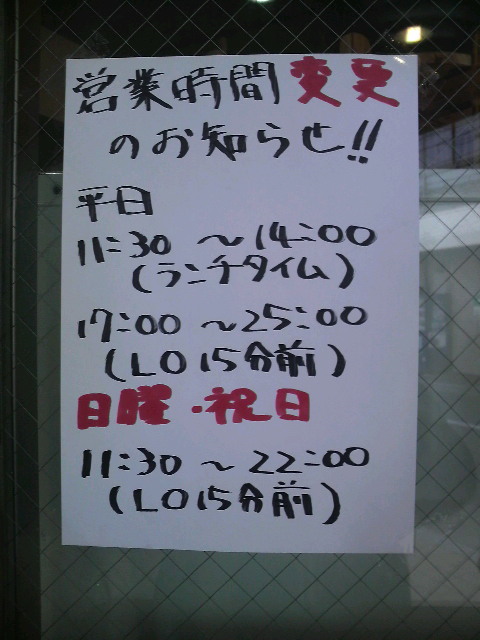 営業時間変更
のお知らせ!!
平日
11:30 〜14:00
(ランチタイム)
17:00 〜25:00
(LO15分前)
日曜・祝日
11:30 〜 22:00
(LO15分前)